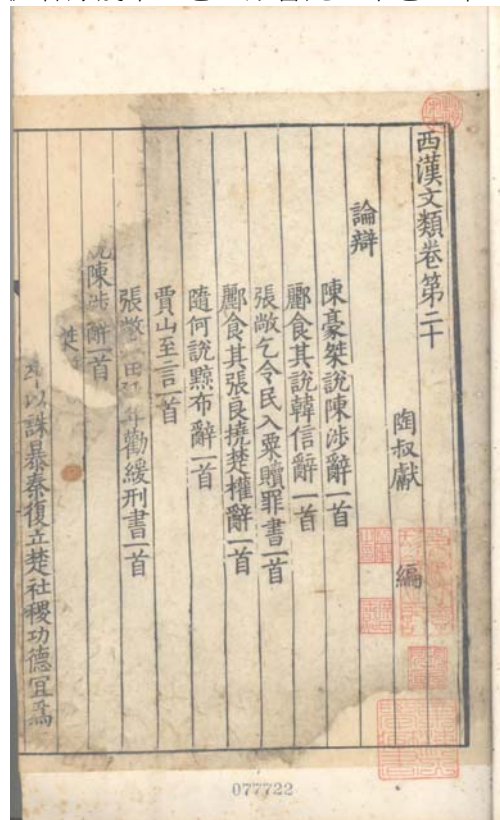 西漢文類卷第二十
陶叔獻　編
論辯
陳豪桀說陳涉辭一首
酈食其說韓信辭一首
張敞乞令民入粟贖罪書一首
酈食其張良撓楚權辭一首
隨何說黥布辭一首
賈山至言一首
張敞 田 年勸緩刑書一首
說陳涉辭一首
以誅暴秦復立楚社稷功德宜爲
077722